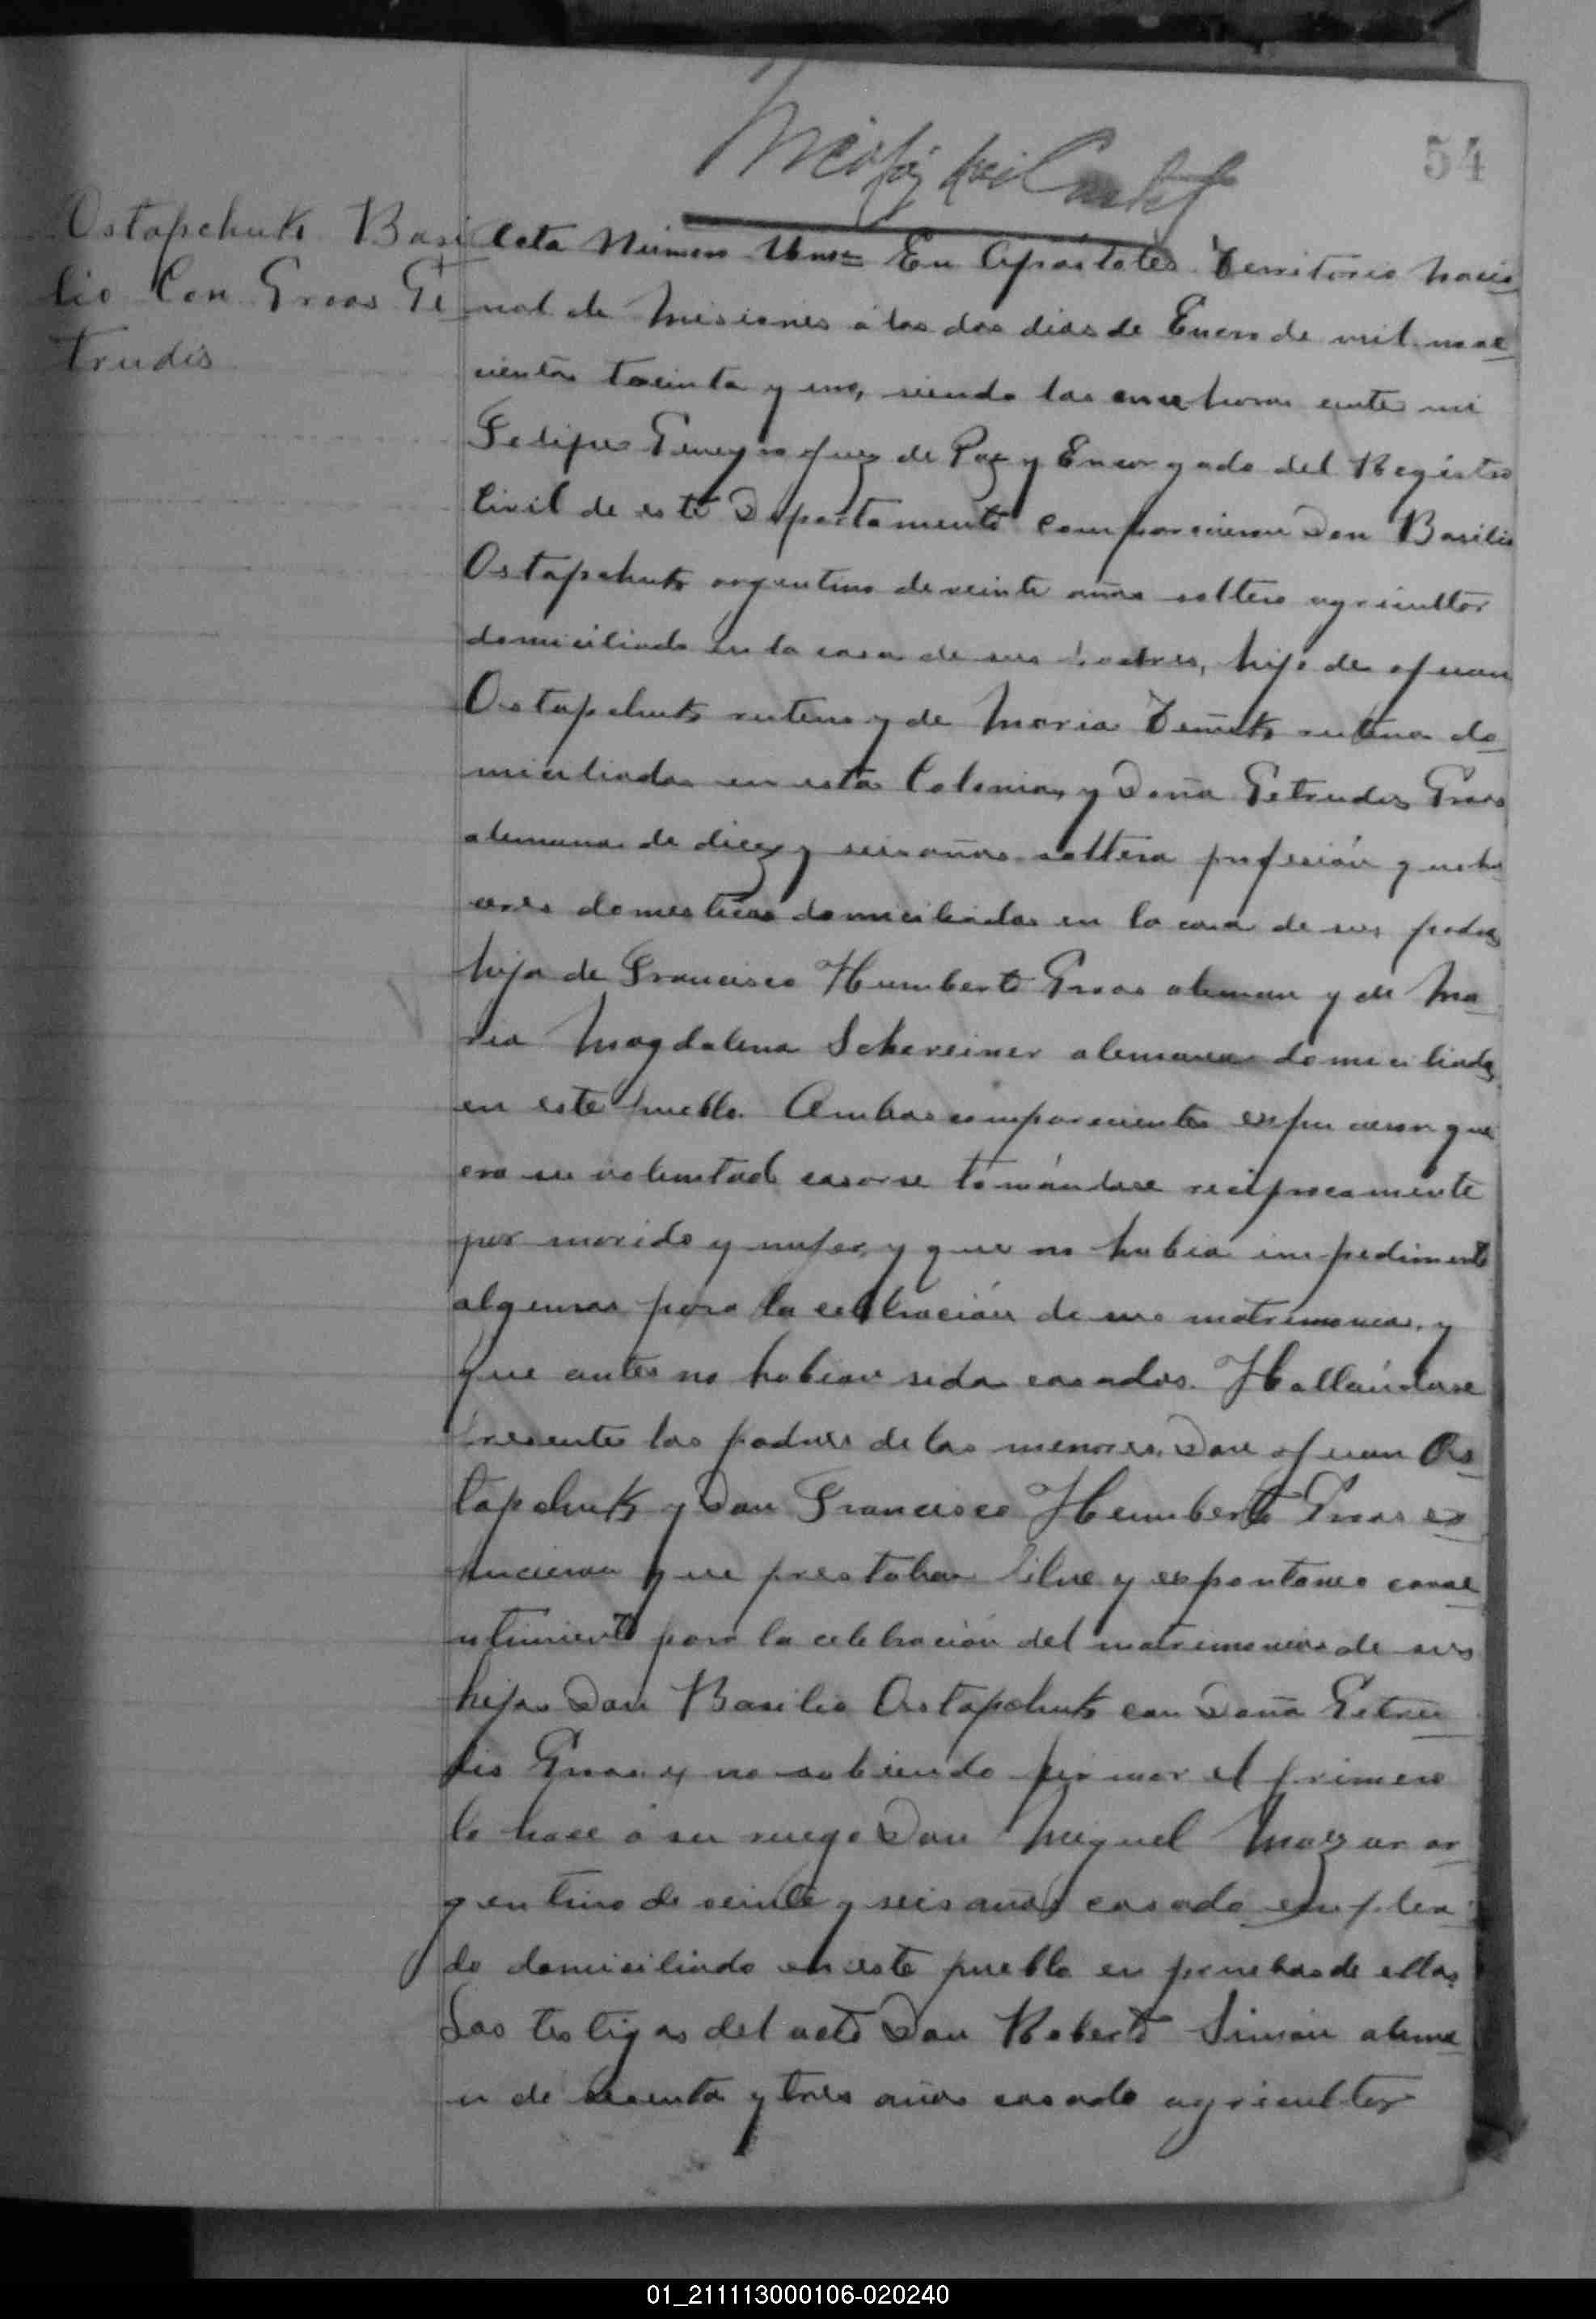 54
Ostapchuk Basi
lio Con Groos Ge
trudis
Acta Número Uno= En Apóstoles Territorio Nacio
nal de Misiones á los dos dias de Enero de mil nove
cientos treinta y uno, siendo las once horas ante mi
Felipe Juez de Paz y Encargado del Registro
Civil de este Departamento comparecieron Don Basilio
Ostapchuk argentino de veinte años soltero agricultor
domiciliado en la casa de sus padres, hijo de Juan
Ostapchuk ruteno y de Maria rutena do
miciliados en esta Colonia, y Doña Getrudis Groos
alemana de diez y seis años soltera profesión queha
ceres domesticos domiciliada en la casa de sus padres
hija de Francisco Humberto Groos aleman y de Ma
ria Magdalena Schereiner alemana domiciliados
en este pueblo. Ambos comparecientes expucieron que
era su voluntad casarse tomándose reciprocamente
por marido y mujer, y que no habia impedimento
alguno para la celebración de su matrimonio, y
que antes no habian sido casados. Hallándose
presentes los padres de los menores, Don Juan Os
tapchuk y Don Francisco Humberto Groos ex
pucieron que prestaban libre y espontaneo conse
ntimiento para la celebración del matrimonio de sus
hijos Don Basilio Ostapchuk con Doña Getru
dis Groos y no sabiendo firmar el primero
lo hace á su ruego Don Miguel Mazur ar
gentino de veinte y seis años casado emplea
do domiciliado en este pueblo en pruebas de ellos
Los testigos del acto Don Roberto Simón alema
n de sesenta y tres años casado agricultor
01_211113000106-020240